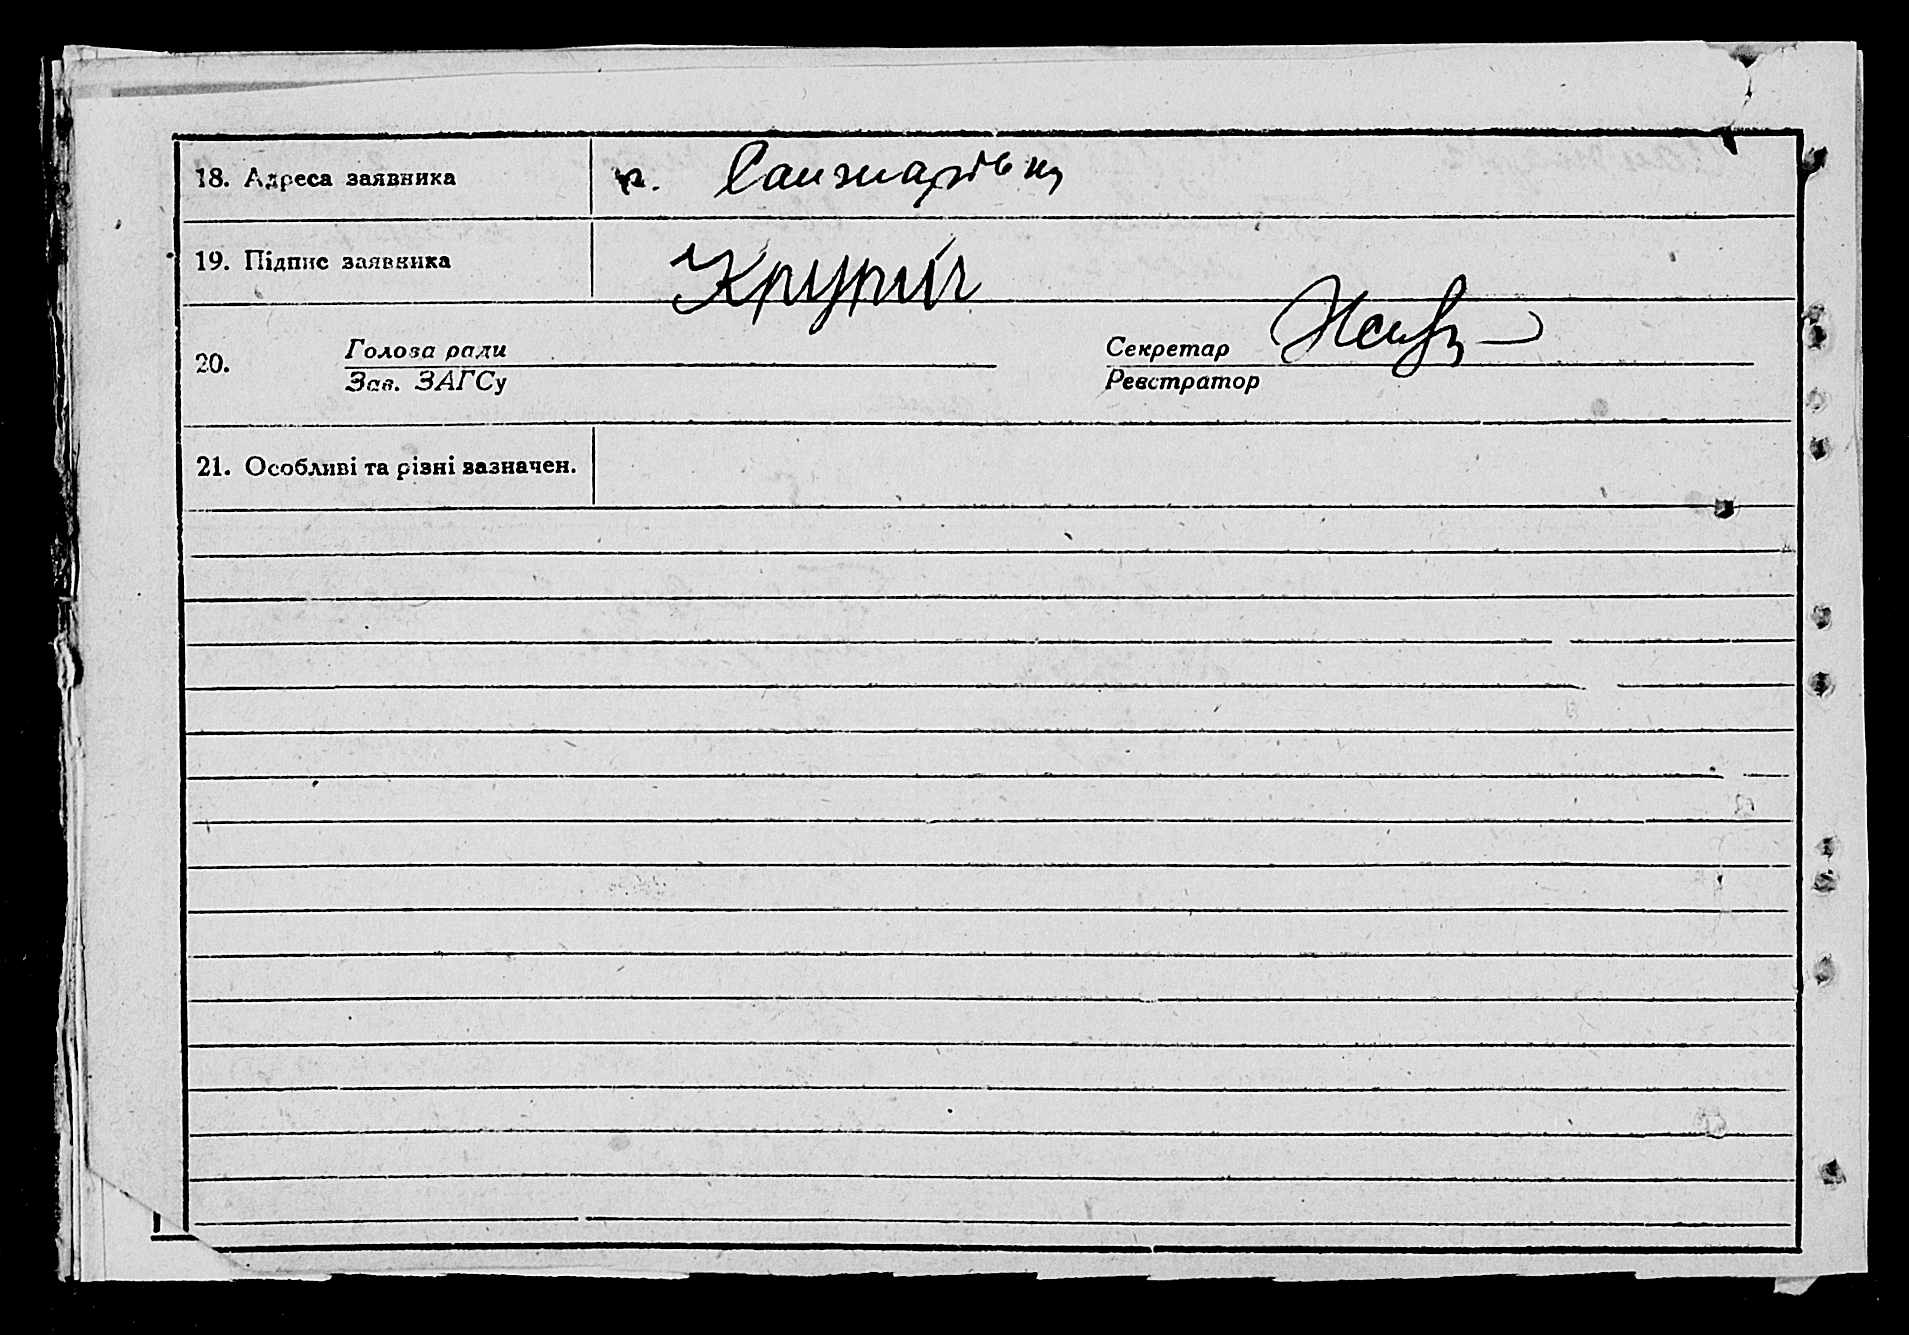 18. Адреса заявника с. Санжарівка
19. Підпис заявника
20. Голова ради Секретар
Зав. ЗАГСу Реєстратор
21. Особливі та різні зазначен.